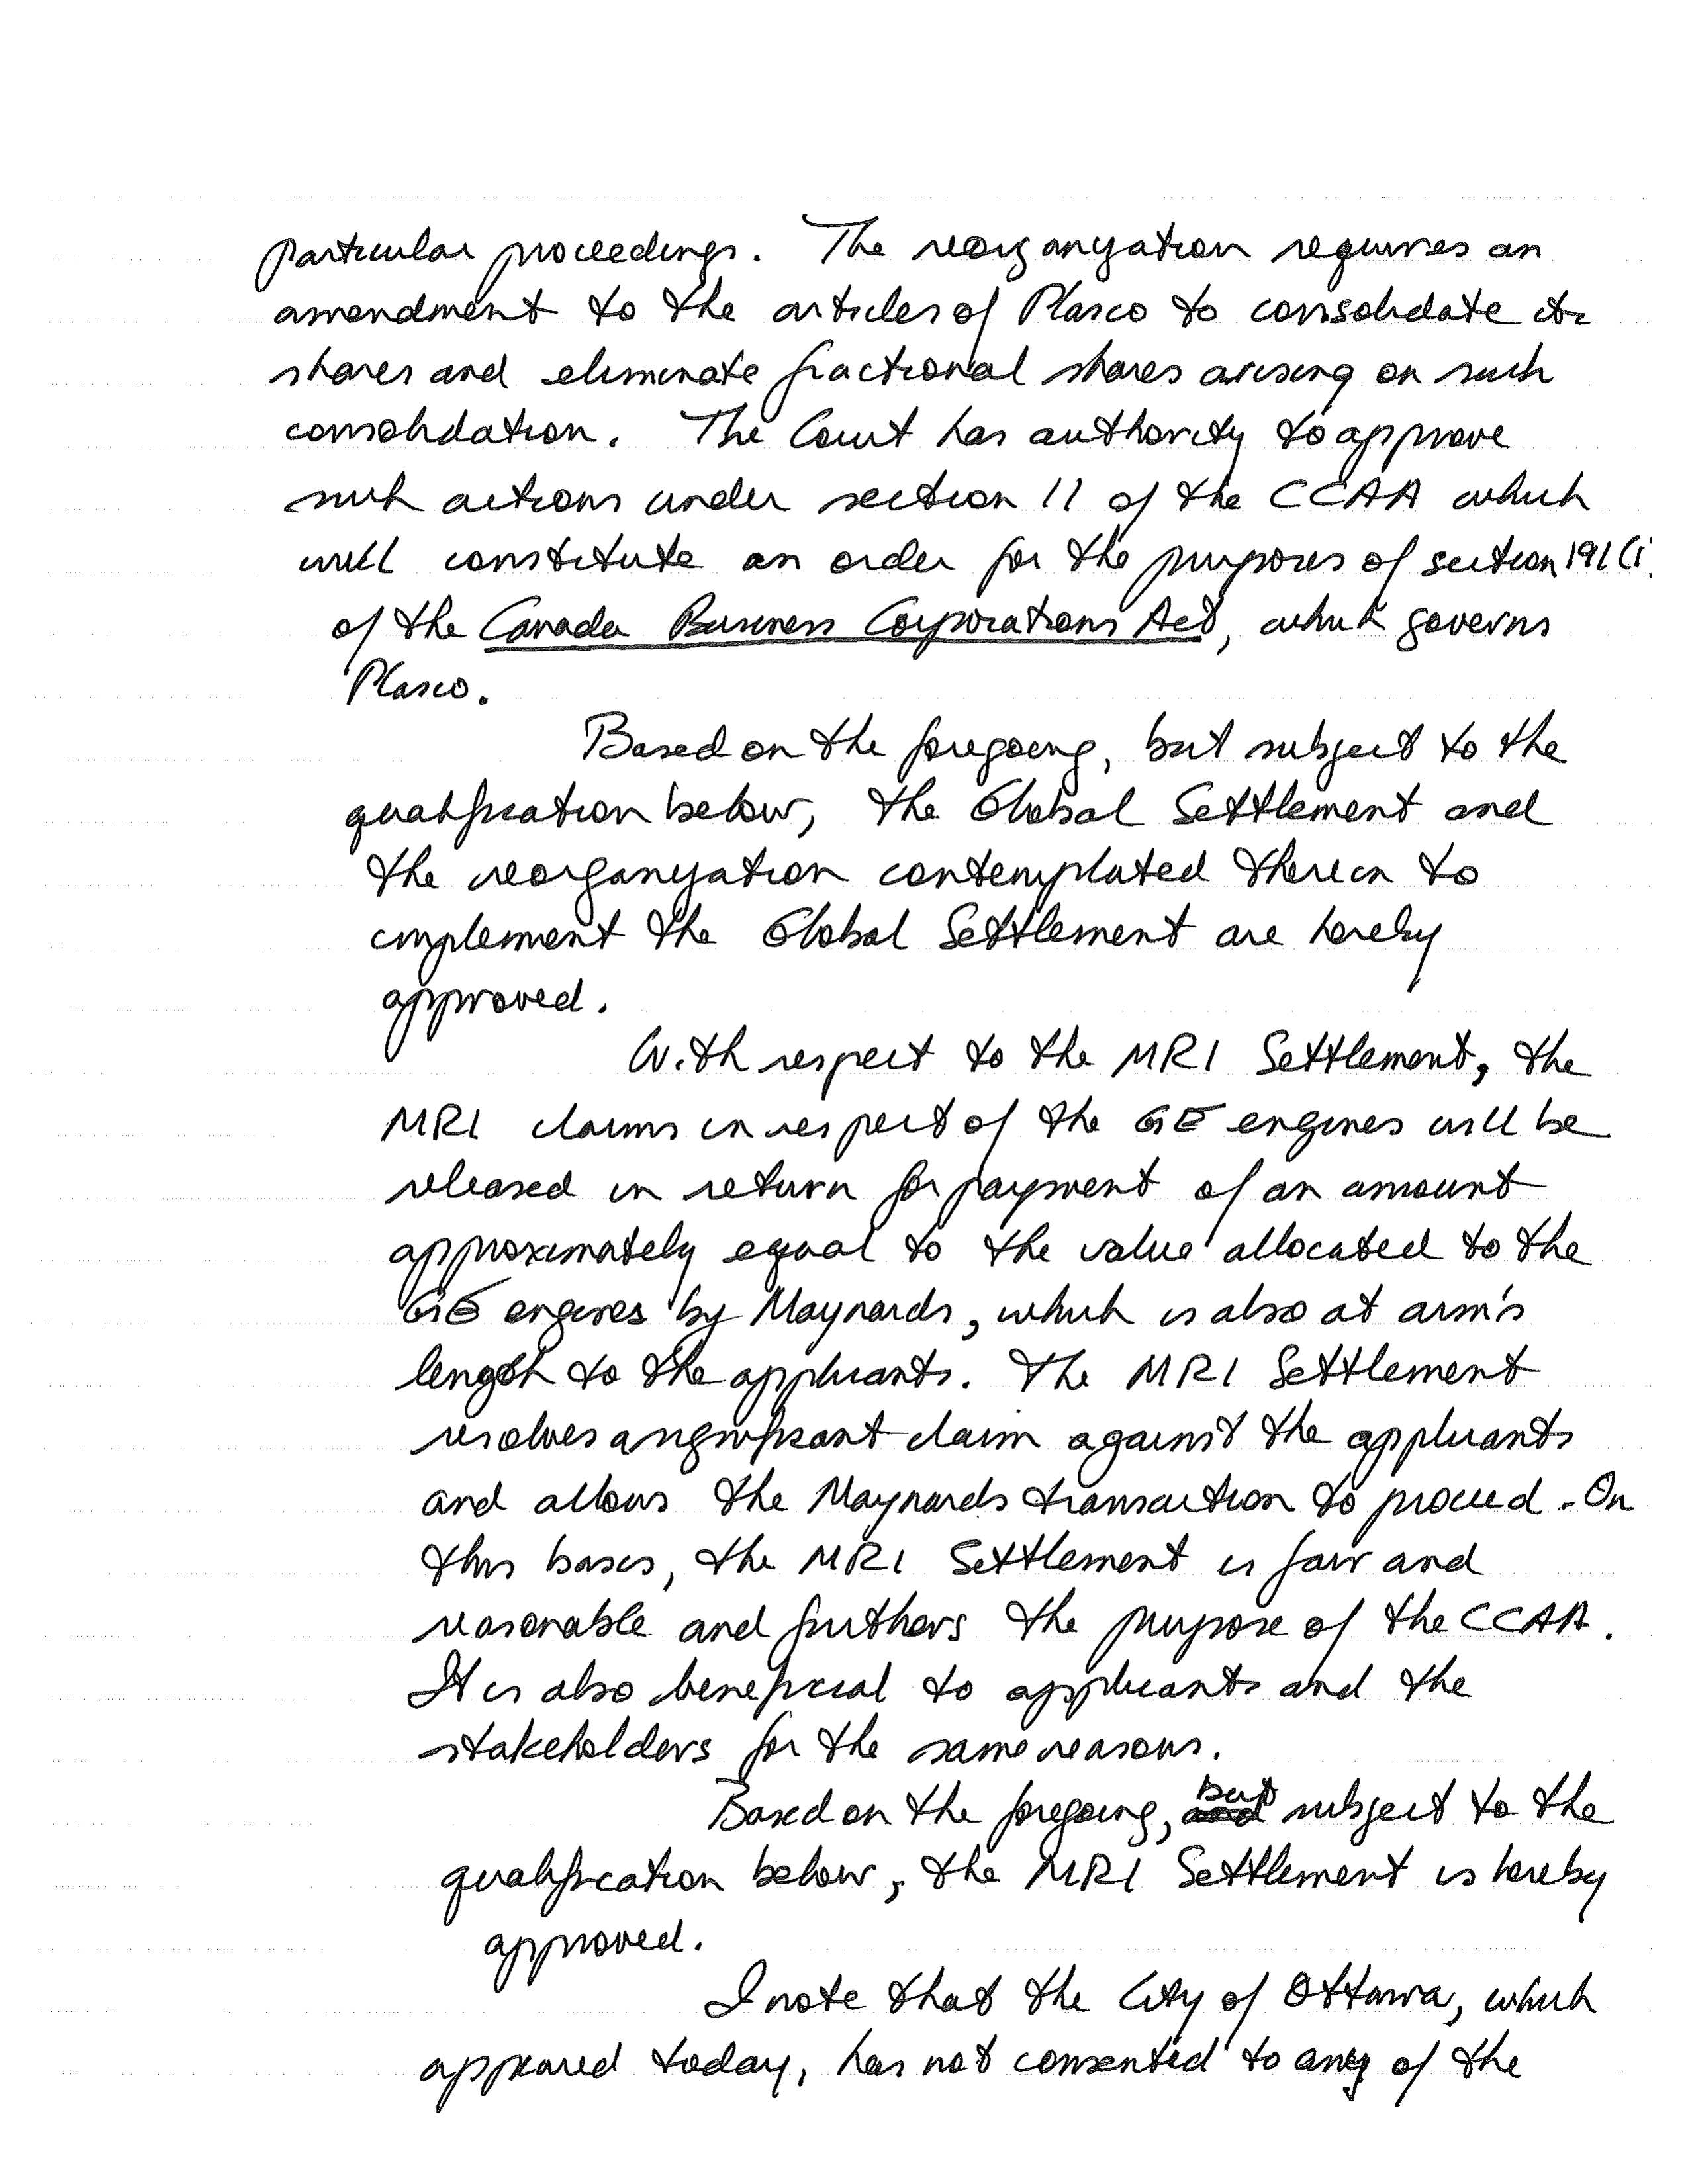 particular proceedings. The reorganization requires an
amendment to the articles of Plasco to consolidate its
shares and eliminate fractional shares arising on such
consolidation. The Court has authority to approve
such actions under section 11 of the CCAA which
will constitute an order for the purposes of section 191(1
of the Canada Business Corporations Act, which governs
Plasco.
Based on the foregoing, but subject to the
qualification below, the Global Settlement and
the reorganization contemplated therein to
implement the Global Settlement are hereby
approved.
With respect to the MRI Settlement, the
MRI claims in respect of the GE engines will be
released in return for payment of an amount
approximately equal to the value allocated to the
GE engines by Maynards, which is also at arm's
length to the applicants. The MRI Settlement
resolves a significant claim against the applicants
and allows the Maynards transaction to proceed. On
this basis, the MRI Settlement is fair and
reasonable and furthers the purpose of the CCAA.
It is also beneficial to applicants and the
stakeholders for the same reasons.
Based on the foregoing, but subject to the
qualification below, the MRI Settlement is hereby
approved.
I note that the City of Ottawa, which
appeared today, has not consented to any of the